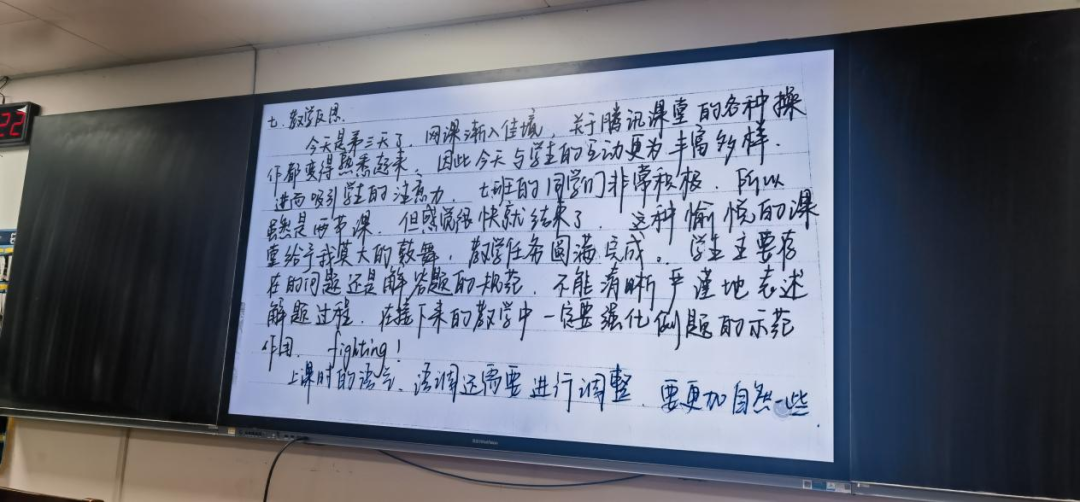 七、教学反思
今天是第三天了，网课渐入佳境，关于腾讯课堂的各种操
作都变得熟悉起来，因此今天与学生的互动更为丰富多样．
进而吸引学生的注意力．七班的同学们非常积极．所以
虽然是两节课．但感觉很快就结束了．这种愉悦的课
堂给予我莫大的鼓舞，教学任务圆满完成。学生主要存
在的问题还是解答题的规范．不能清晰严谨地表述
解题过程．在接下来的教学中一定要强化例题的示范
作用． fighting！
上课时的语气、语调还需要进行调整．要更加自然一些
22